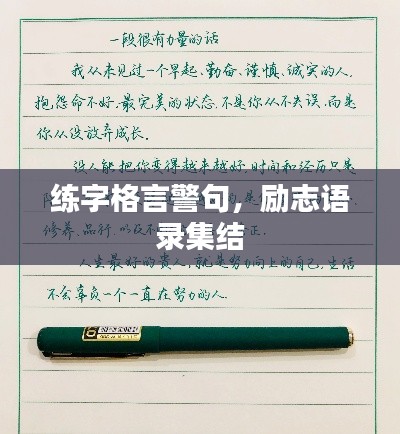 一段很有力量的话
我从未见过一个早起、勤奋、谨慎、诚实的人
抱怨命不好。最完美的状态,不是你从不失误,而是
你从没放弃成长。
没人能把你变得越来越好,时间和经历只是
练字格言警句，励志语
录集结
修养、品行、以及不
正。
人生最好的贵人,就是努力向上的自己,生活
不会辜负一个一直在努力的人。
6